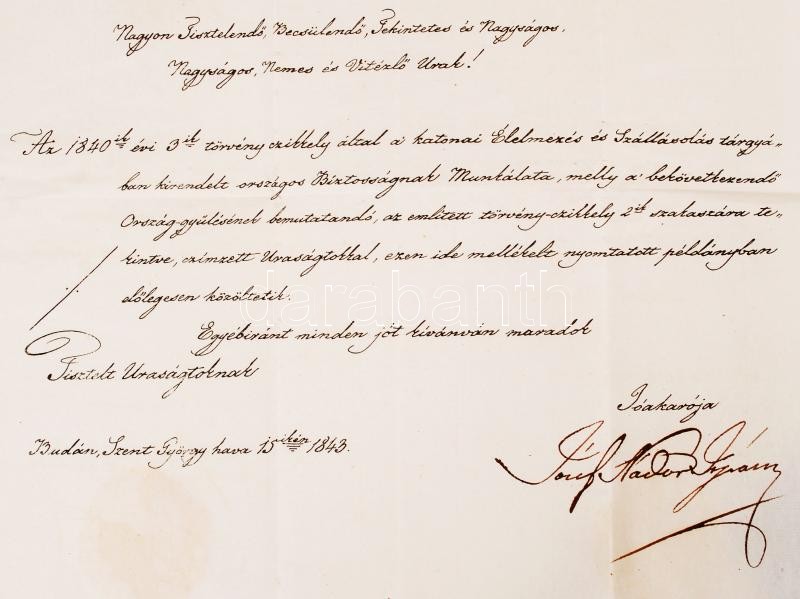 Nagyon Tisztelendő, Becsülendő, Tekintetes és Nagyságos,
Nagyságos, Nemes és Vitézlő Urak!
Az 1840ik évi 3ik törvény-czikkely által a' katonai Élelmezés és Szállásolás tárgyá-
ban kirendelt országos Biztosságnak Munkálata, melly a' bekövetkezendő
Ország-gyűlésének bemutatandó, az említett törvény-czikkely 2ik szakaszára te-
kintve, czímzett Uraságtokkal, ezen ide mellékelt nyomtatott példányban
előlegesen közöltetik.
Egyébiránt minden jót kívánván maradok
Tisztelt Uraságtoknak
Jóakarója
Budán, Szent György hava 15ikén 1843.
József Nádor Ispán
darabanth